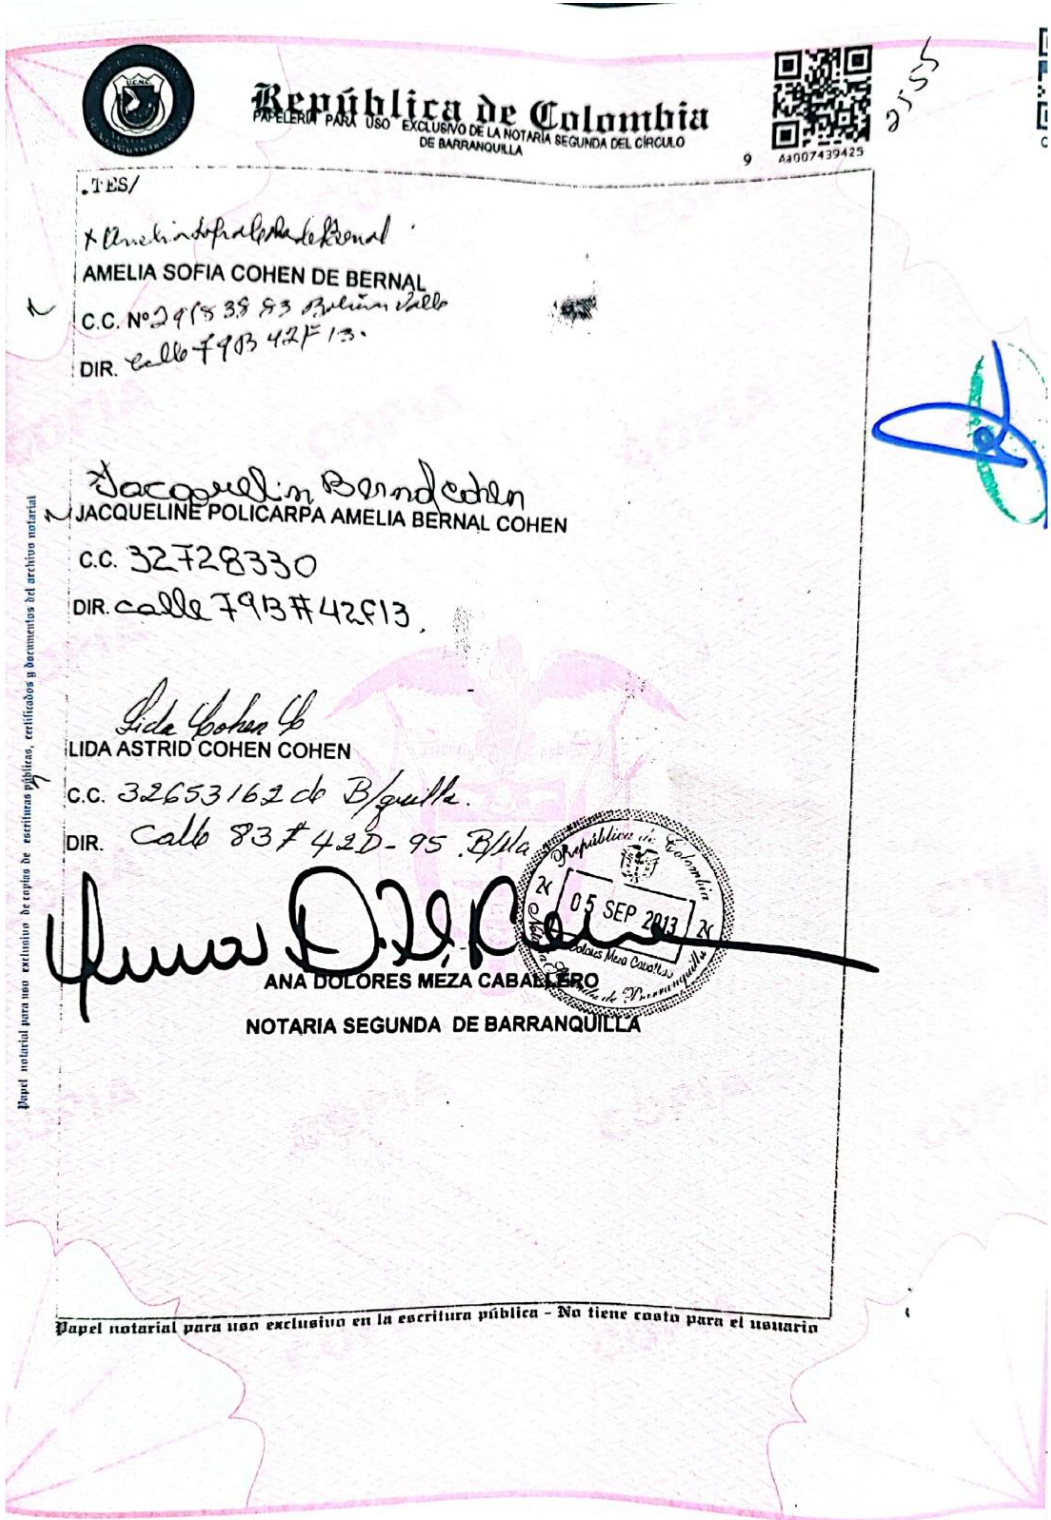 República de Colombia
PAPELERIA PARA USO EXCLUSIVO DE LA NOTARIA SEGUNDA DEL CIRCULO
DE BARRANQUILLA
2555
9
Aa007439425
.TES/
AMELIA SOFIA COHEN DE BERNAL
C.C. Nº
DIR. calle 79B 42F 13.
Jacquelin Bernal Cohen
JACQUELINE POLICARPA AMELIA BERNAL COHEN
C.C. 32728330
DIR. calle 79B # 42F13.
Lida Cohen C
LIDA ASTRID COHEN COHEN
C.C. 32653162 de B/quilla.
DIR. Calle 83 # 42D-95 B/lla
República de Colombia
05 SEP 2013
Dolores Meza Caballero
ANA DOLORES MEZA CABALLERO
NOTARIA SEGUNDA DE BARRANQUILLA
Papel notarial para uso exclusivo de copias de escrituras públicas, certificados y documentos del archivo notarial
Papel notarial para uso exclusivo en la escritura pública - No tiene costo para el usuario